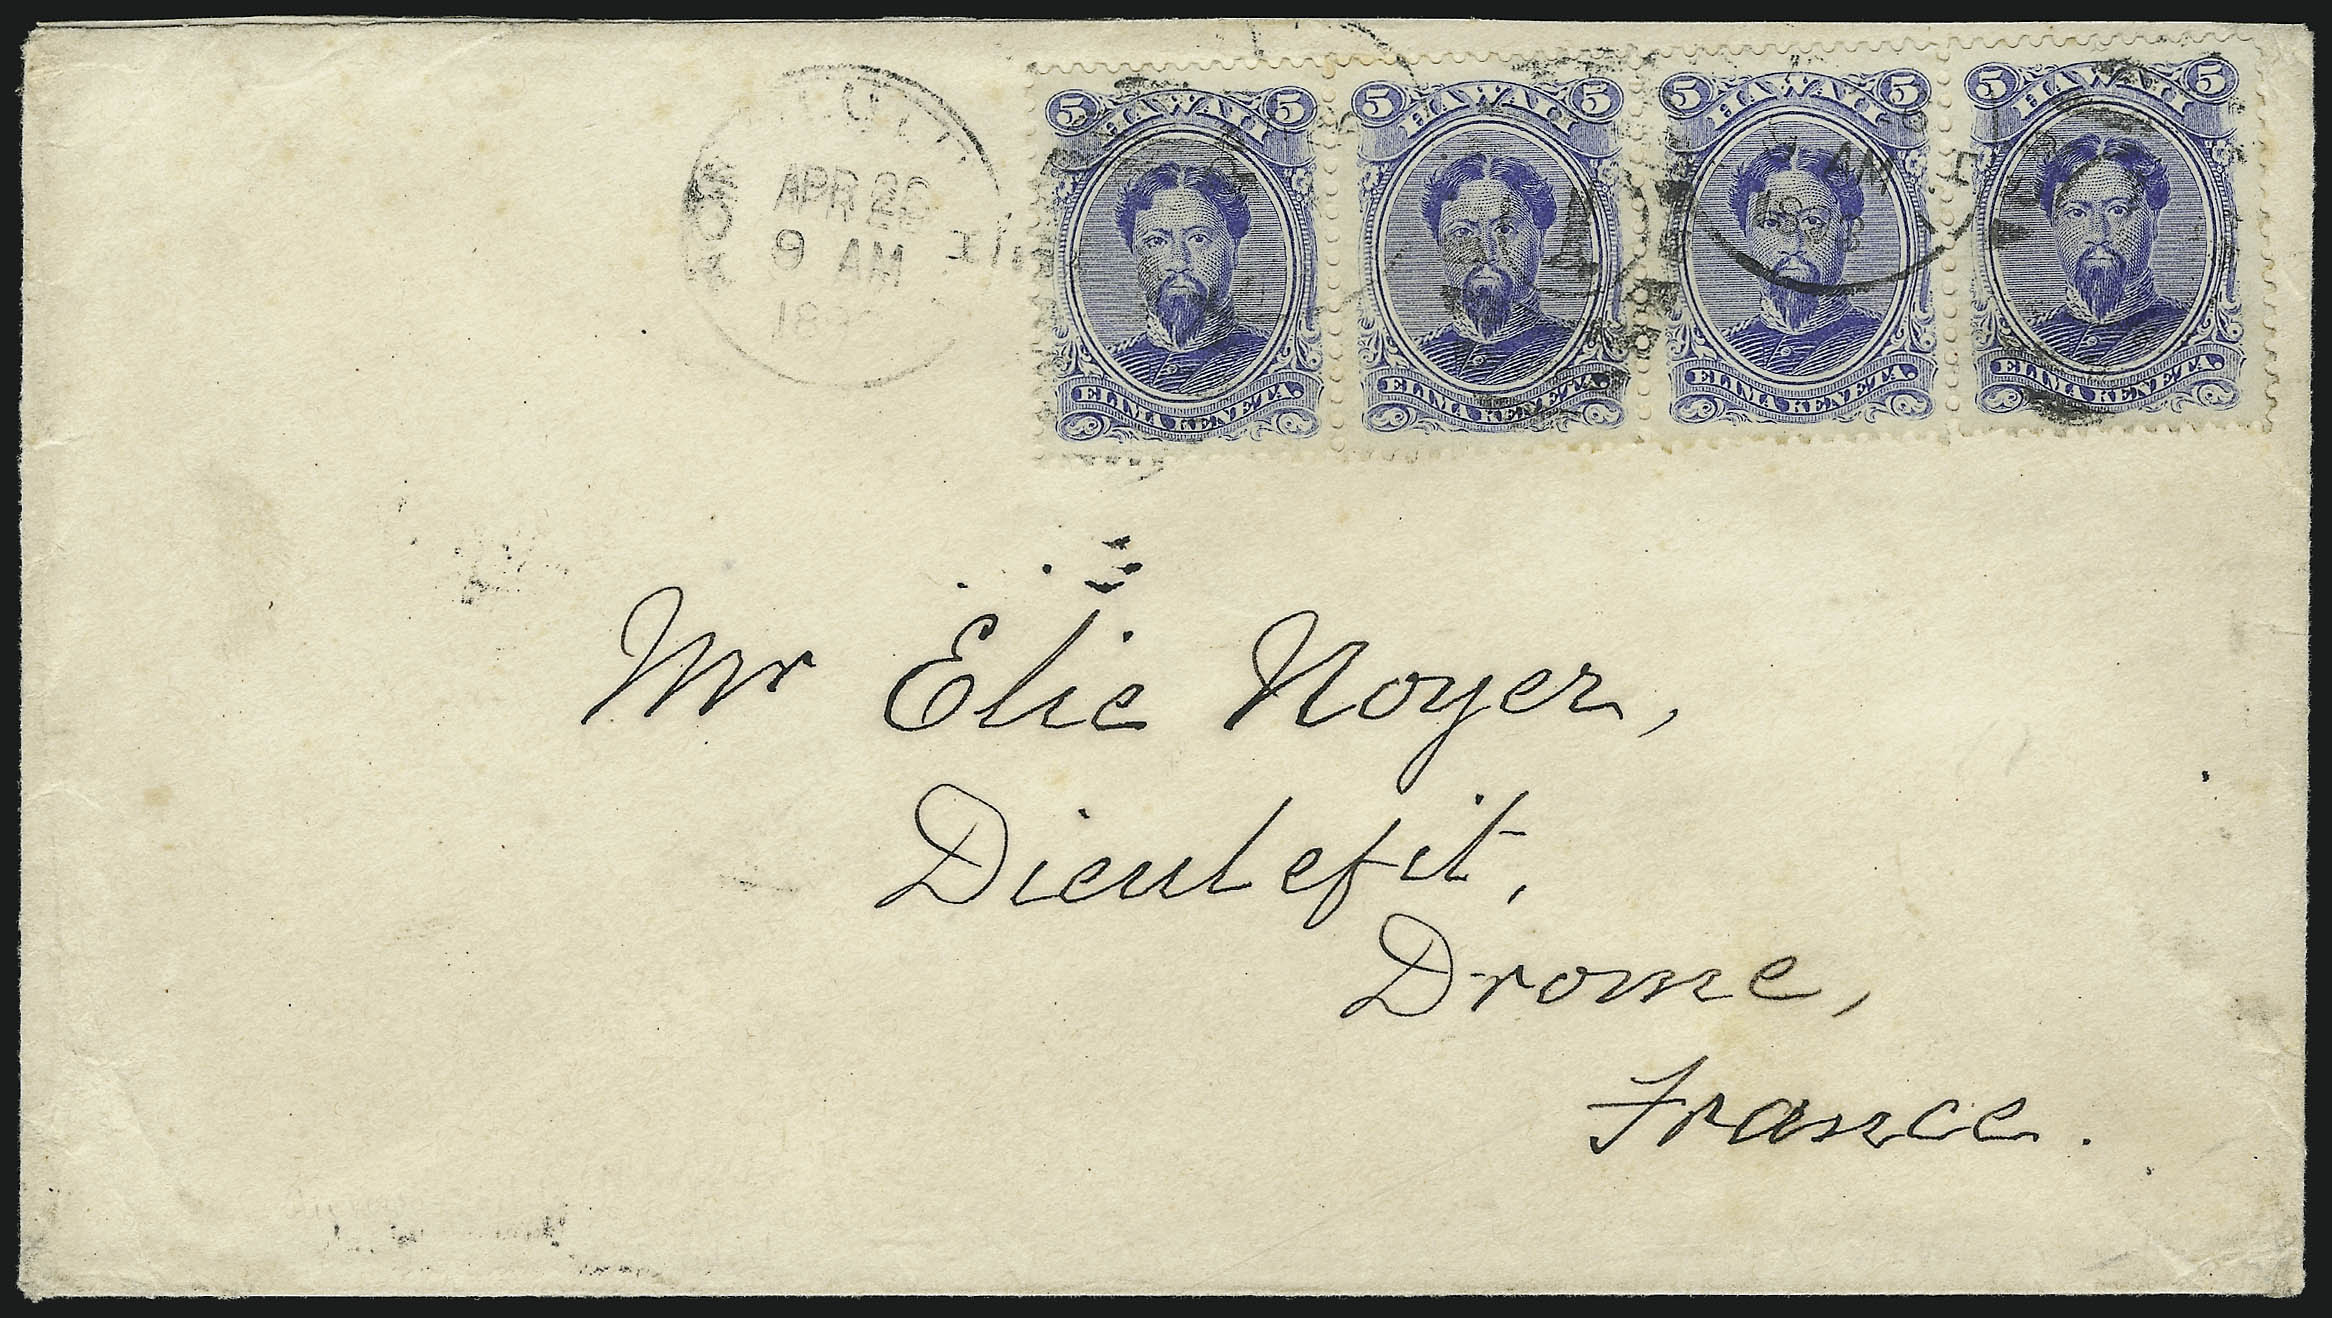 5 HAWAII 5 5 HAWAII 5 5 HAWAII 5 5 HAWAII 5
ELIMA KENETA. ELIMA KENETA. ELIMA KENETA. ELIMA KENETA.
APR
9 AM
AM
Mr Elie Noyer,
Dieulefit,
Drome,
France.